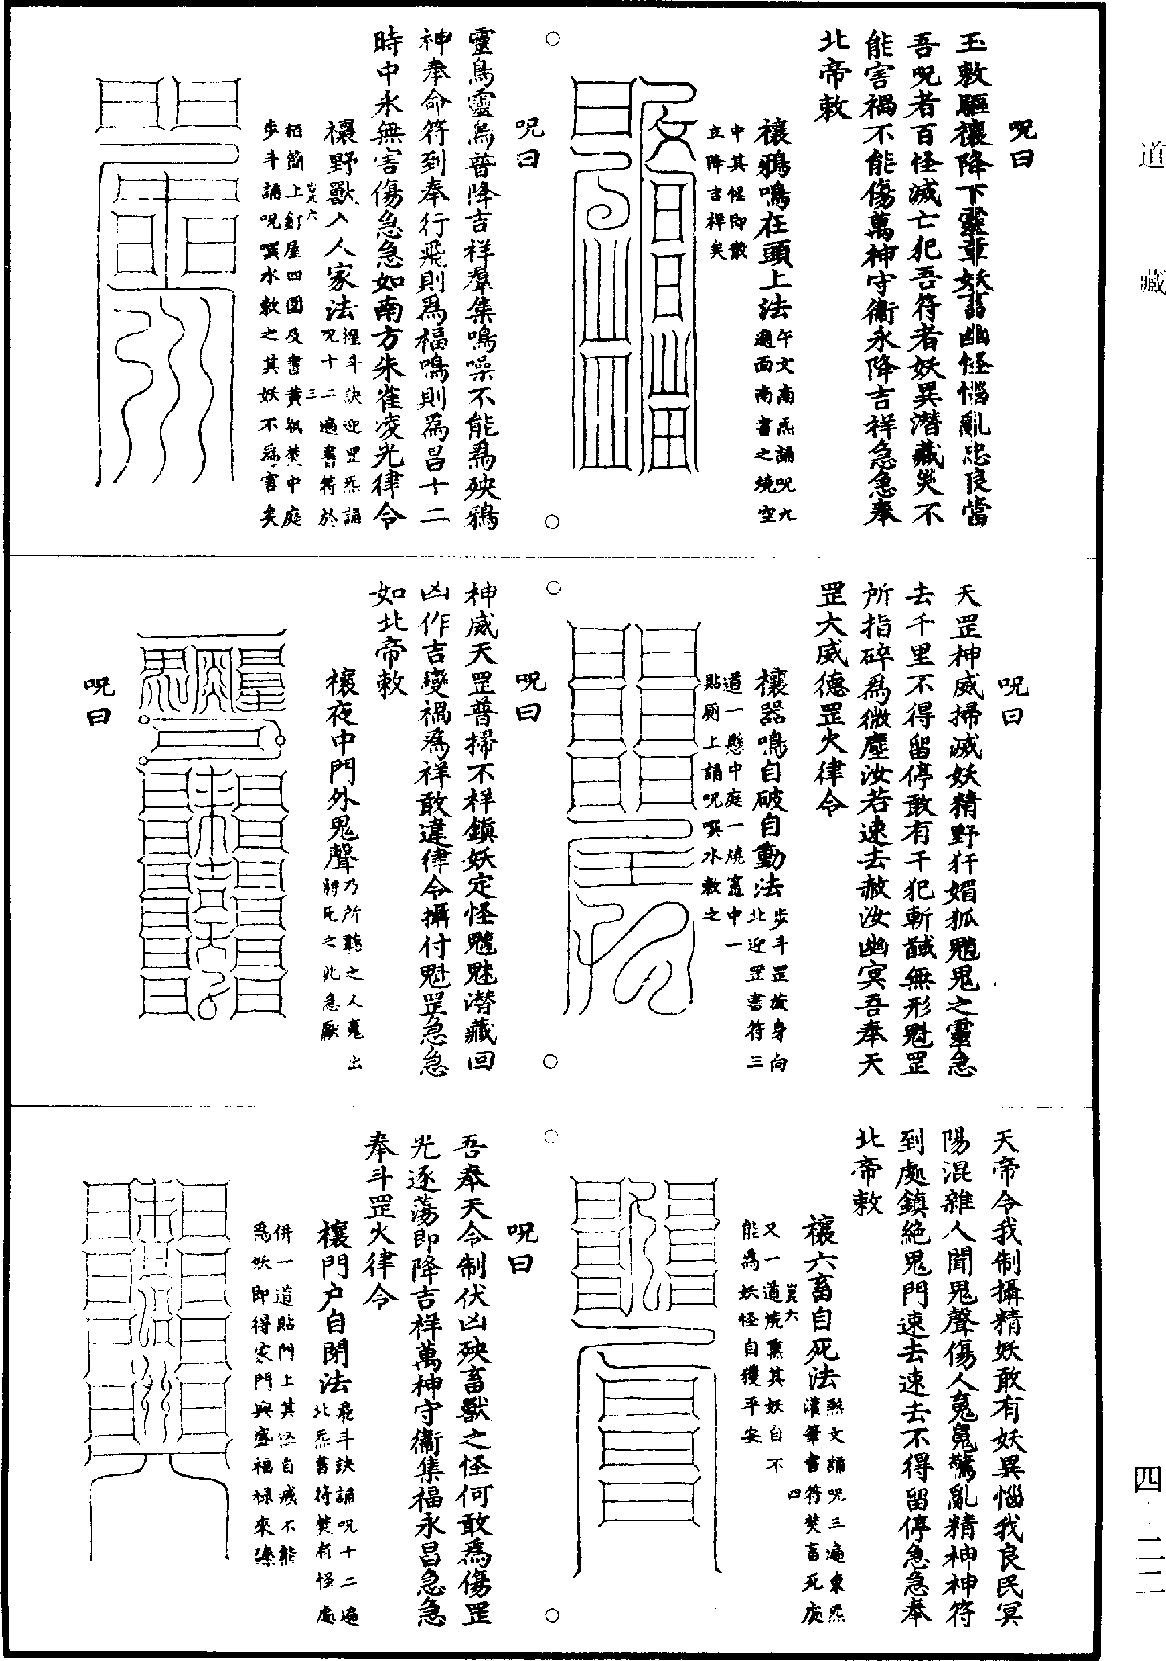 道藏
四·二二
呪曰
玉敕驅禳降下靈章妖畜幽怪惱亂忠良當
吾呪者百怪滅亡犯吾符者妖異潛藏災不
能害禍不能傷萬神守衞永降吉祥急急奉
北帝敕
禳鵶鳴在頭上法午文南炁誦呪九
遍面南書之燒空
中其怪即散
立降吉祥矣
呪曰
靈鳥靈烏普降吉祥羣集鳴噪不能爲殃鴉
神奉命符到奉行飛則爲福鳴則爲昌十二
時中永無害傷急急如南方朱雀凌光律令
禳野獸入人家法㨪斗訣迎罡炁誦
呪十二遍書符於
栢簡上釘屋四圍及書黃紙焚中庭
步斗誦呪噀水敕之其妖不爲害矣
呪曰
天罡神威掃滅妖精野犴媚狐魍鬼之靈急
去千里不得留停敢有干犯斬馘無形魁罡
所指碎爲微塵汝若速去赦汝幽冥吾奉天
罡大威德罡火律令
禳器鳴自破自動法步斗罡旋身向
北迎罡書符三
道一懸中庭一燒竃中一
貼厠上誦呪噀水敕之
呪曰
神威天罡普掃不祥鎮妖定怪魍魅潛藏回
凶作吉變禍爲祥敢違律令攝付魁罡急急
如北帝敕
禳夜中門外鬼聲乃所聽之人䰟出
將死之兆急厭
呪曰
天帝令我制攝精妖敢有妖異惱我良民冥
陽混雜人聞鬼聲傷人䰟䰟驚亂精神神符
到處鎮絶鬼門速去速去不得留停急急奉
北帝敕
禳六畜自死法煞文誦呪三遍東炁
灌筆書符焚畜死處
又一道燒熏其妖自不
能爲妖怪自獲平安
呪曰
吾奉天令制伏凶殃畜獸之怪何敢爲傷罡
光逐蕩即降吉祥萬神守衞集福永昌急急
奉斗罡火律令
禳門户自閉法飛斗訣誦呪十二遍
北炁書符焚有怪處
併一道貼門上其怪自滅不能
爲妖即得家門興盛福祿來溱